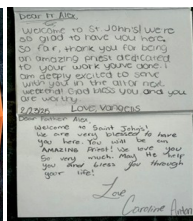 Dear Fr Alex,
Welcome to St. Johns! We're
so glad to have you here.
So far, thank you for being
an amazing priest dedicated
to your work you've done. I
am deeply excited to serve
with you in the altar next
weekend! God bless you and you
are worthy
8/23/25 Love, Vangelis
Dear Father Alex,
Welcome to Saint John's!
We are very blessed to have
you here. You will be an
AMAZING Priest! We love you
so very much. May He help
you and bless you through
your life!
Love
Caroline